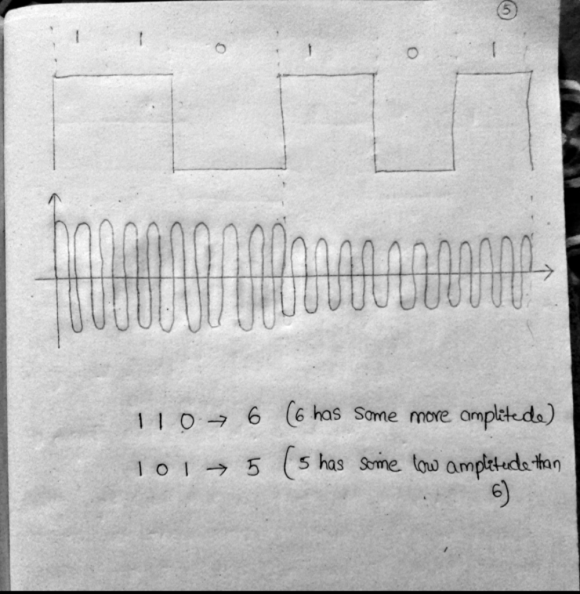 5
1 1 0 1 0 1
1 1 0 → 6 (6 has some more amplitede)
1 0 1 → 5 (5 has some low amplitede than
6)